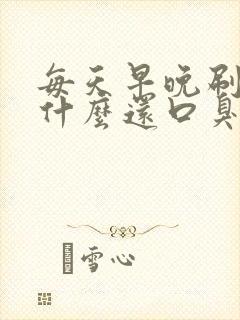 每天早晚刷
什麼還口臭
雪心